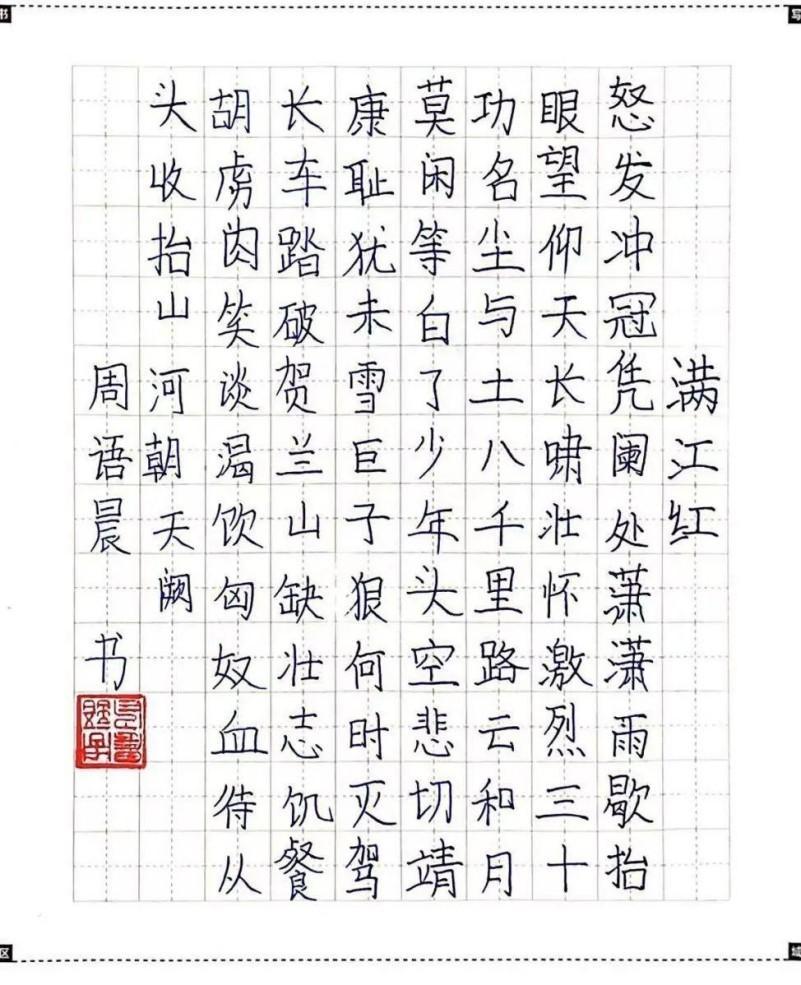 满江红
怒发冲冠凭阑处萧潇雨歇抬
眼望仰天长啸壮怀激烈三十
功名尘与土八千里路云和月
莫闲等白了少年头空悲切靖
康耻犹未雪巨子狠何时灭驾
长车踏破贺兰山缺壮志饥餐
胡虏肉笑谈渴饮匈奴血待从
头收抬山河朝天阙
周语晨 书
书
写
区
域